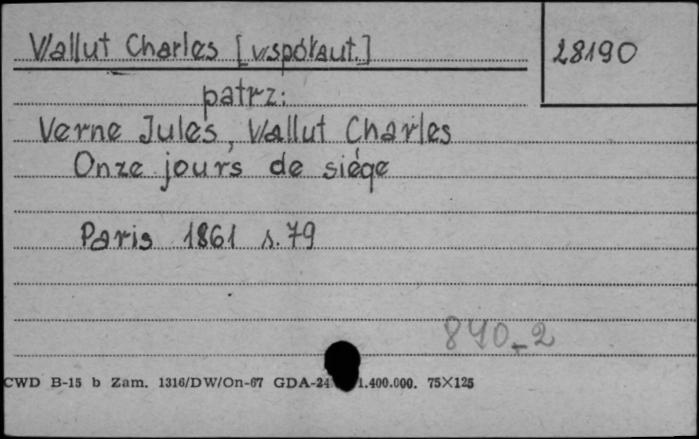 Wallut Charles [współaut.]
28190
patrz:
Verne Jules, Wallut Charles
Onze jours de siége
Paris 1861 s.79
840-2
CWD B-15 b Zam. 1316/DW/On-67 GDA-24 1.400.000. 75×125